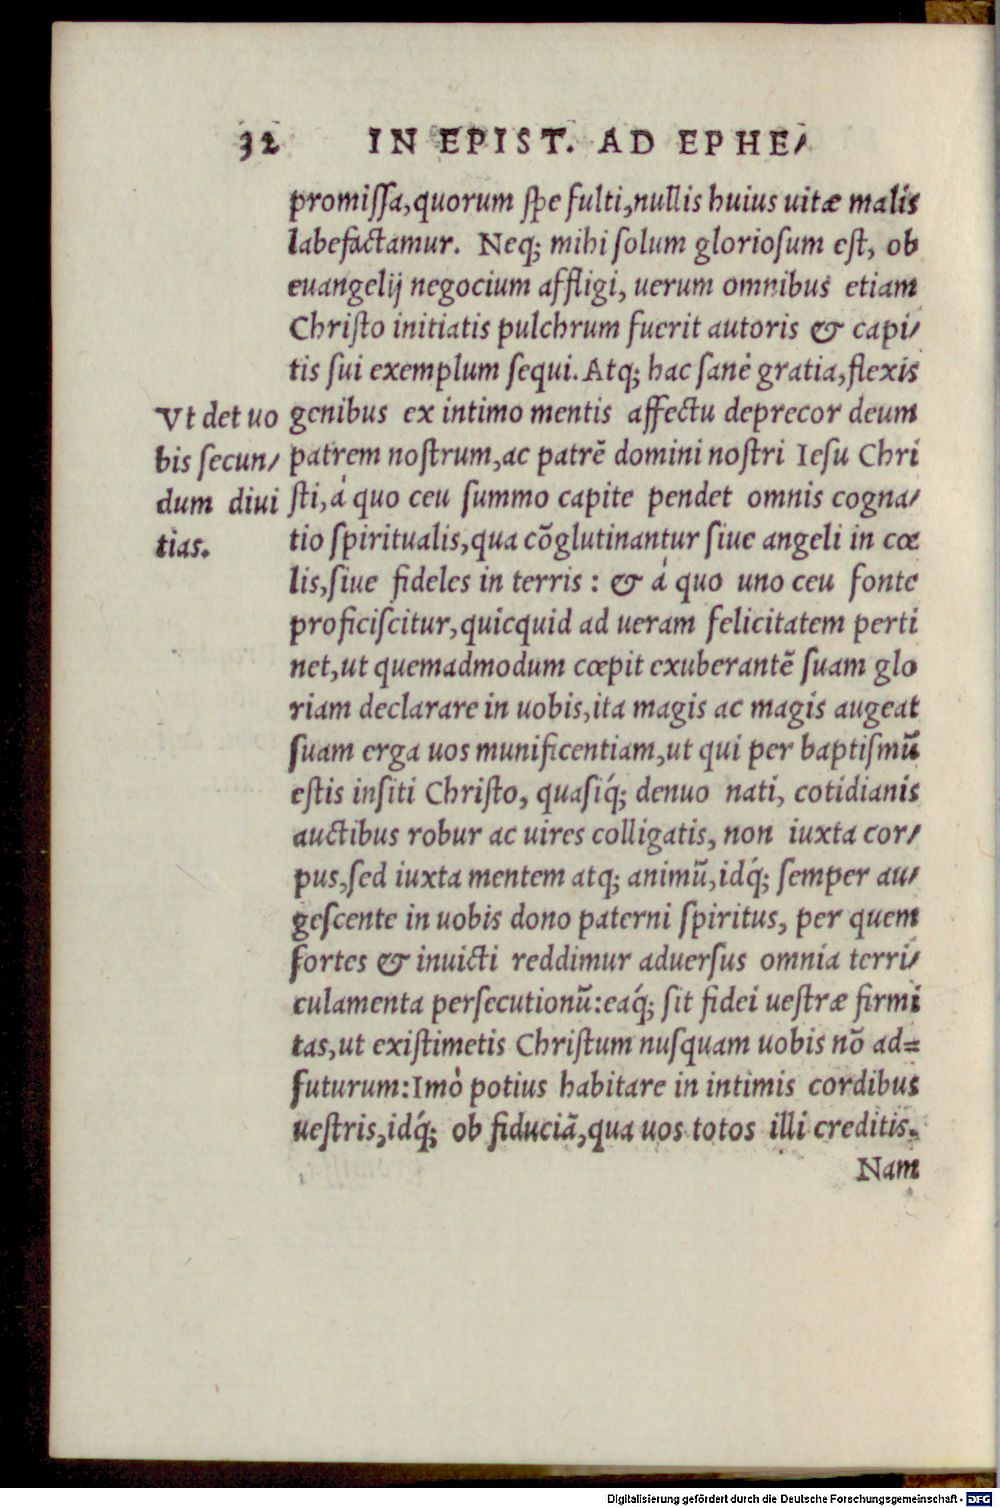 32 IN EPIST. AD EPHE/
promiſſa,quorum ſpe fulti,nullis huius uitæ malis
labefactamur. Neq; mihi ſolum glorioſum eſt, ob
euangelij negocium affligi, uerum omnibus etiam
Chriſto initiatis pulchrum fuerit autoris & capi/
tis sui exemplum ſequi. Atq; hac ſanè gratia,flexis
genibus ex intimo mentis affectu deprecor deum
patrem noſtrum,ac patrẽ domini noſtri Ieſu Chri
ſti,à quo ceu ſummo capite pendet omnis cogna/
tio ſpiritualis,qua cõglutinantur ſiue angeli in cœ
lis,ſiue fideles in terris : & à quo uno ceu fonte
proficiſcitur,quicquid ad ueram felicitatem perti
net,ut quemadmodum cœpit exuberantẽ ſuam glo
riam declarare in uobis,ita magis ac magis augeat
ſuam erga uos munificentiam,ut qui per baptiſmũ
eſtis inſiti Chriſto, quaſiq́; denuo nati, cotidianis
auctibus robur ac uires colligatis, non iuxta cor/
pus,ſed iuxta mentem atq; animũ,idq́; ſemper au/
geſcente in uobis dono paterni ſpiritus, per quem
fortes & inuicti reddimur aduerſus omnia terri/
culamenta perſecutionũ:eaq́; ſit fidei ueſtræ firmi
tas,ut exiſtimetis Chriſtum nuſquam uobis nõ ad=
futurum:Imò potius habitare in intimis cordibus
ueſtris,idq́; ob fiduciã,qua uos totos illi creditis.
Nam
Vt det uo
bis ſecun/
dum diui
tias.
Digitalisierung gefördert durch die Deutsche Forschungsgemeinschaft - DFG